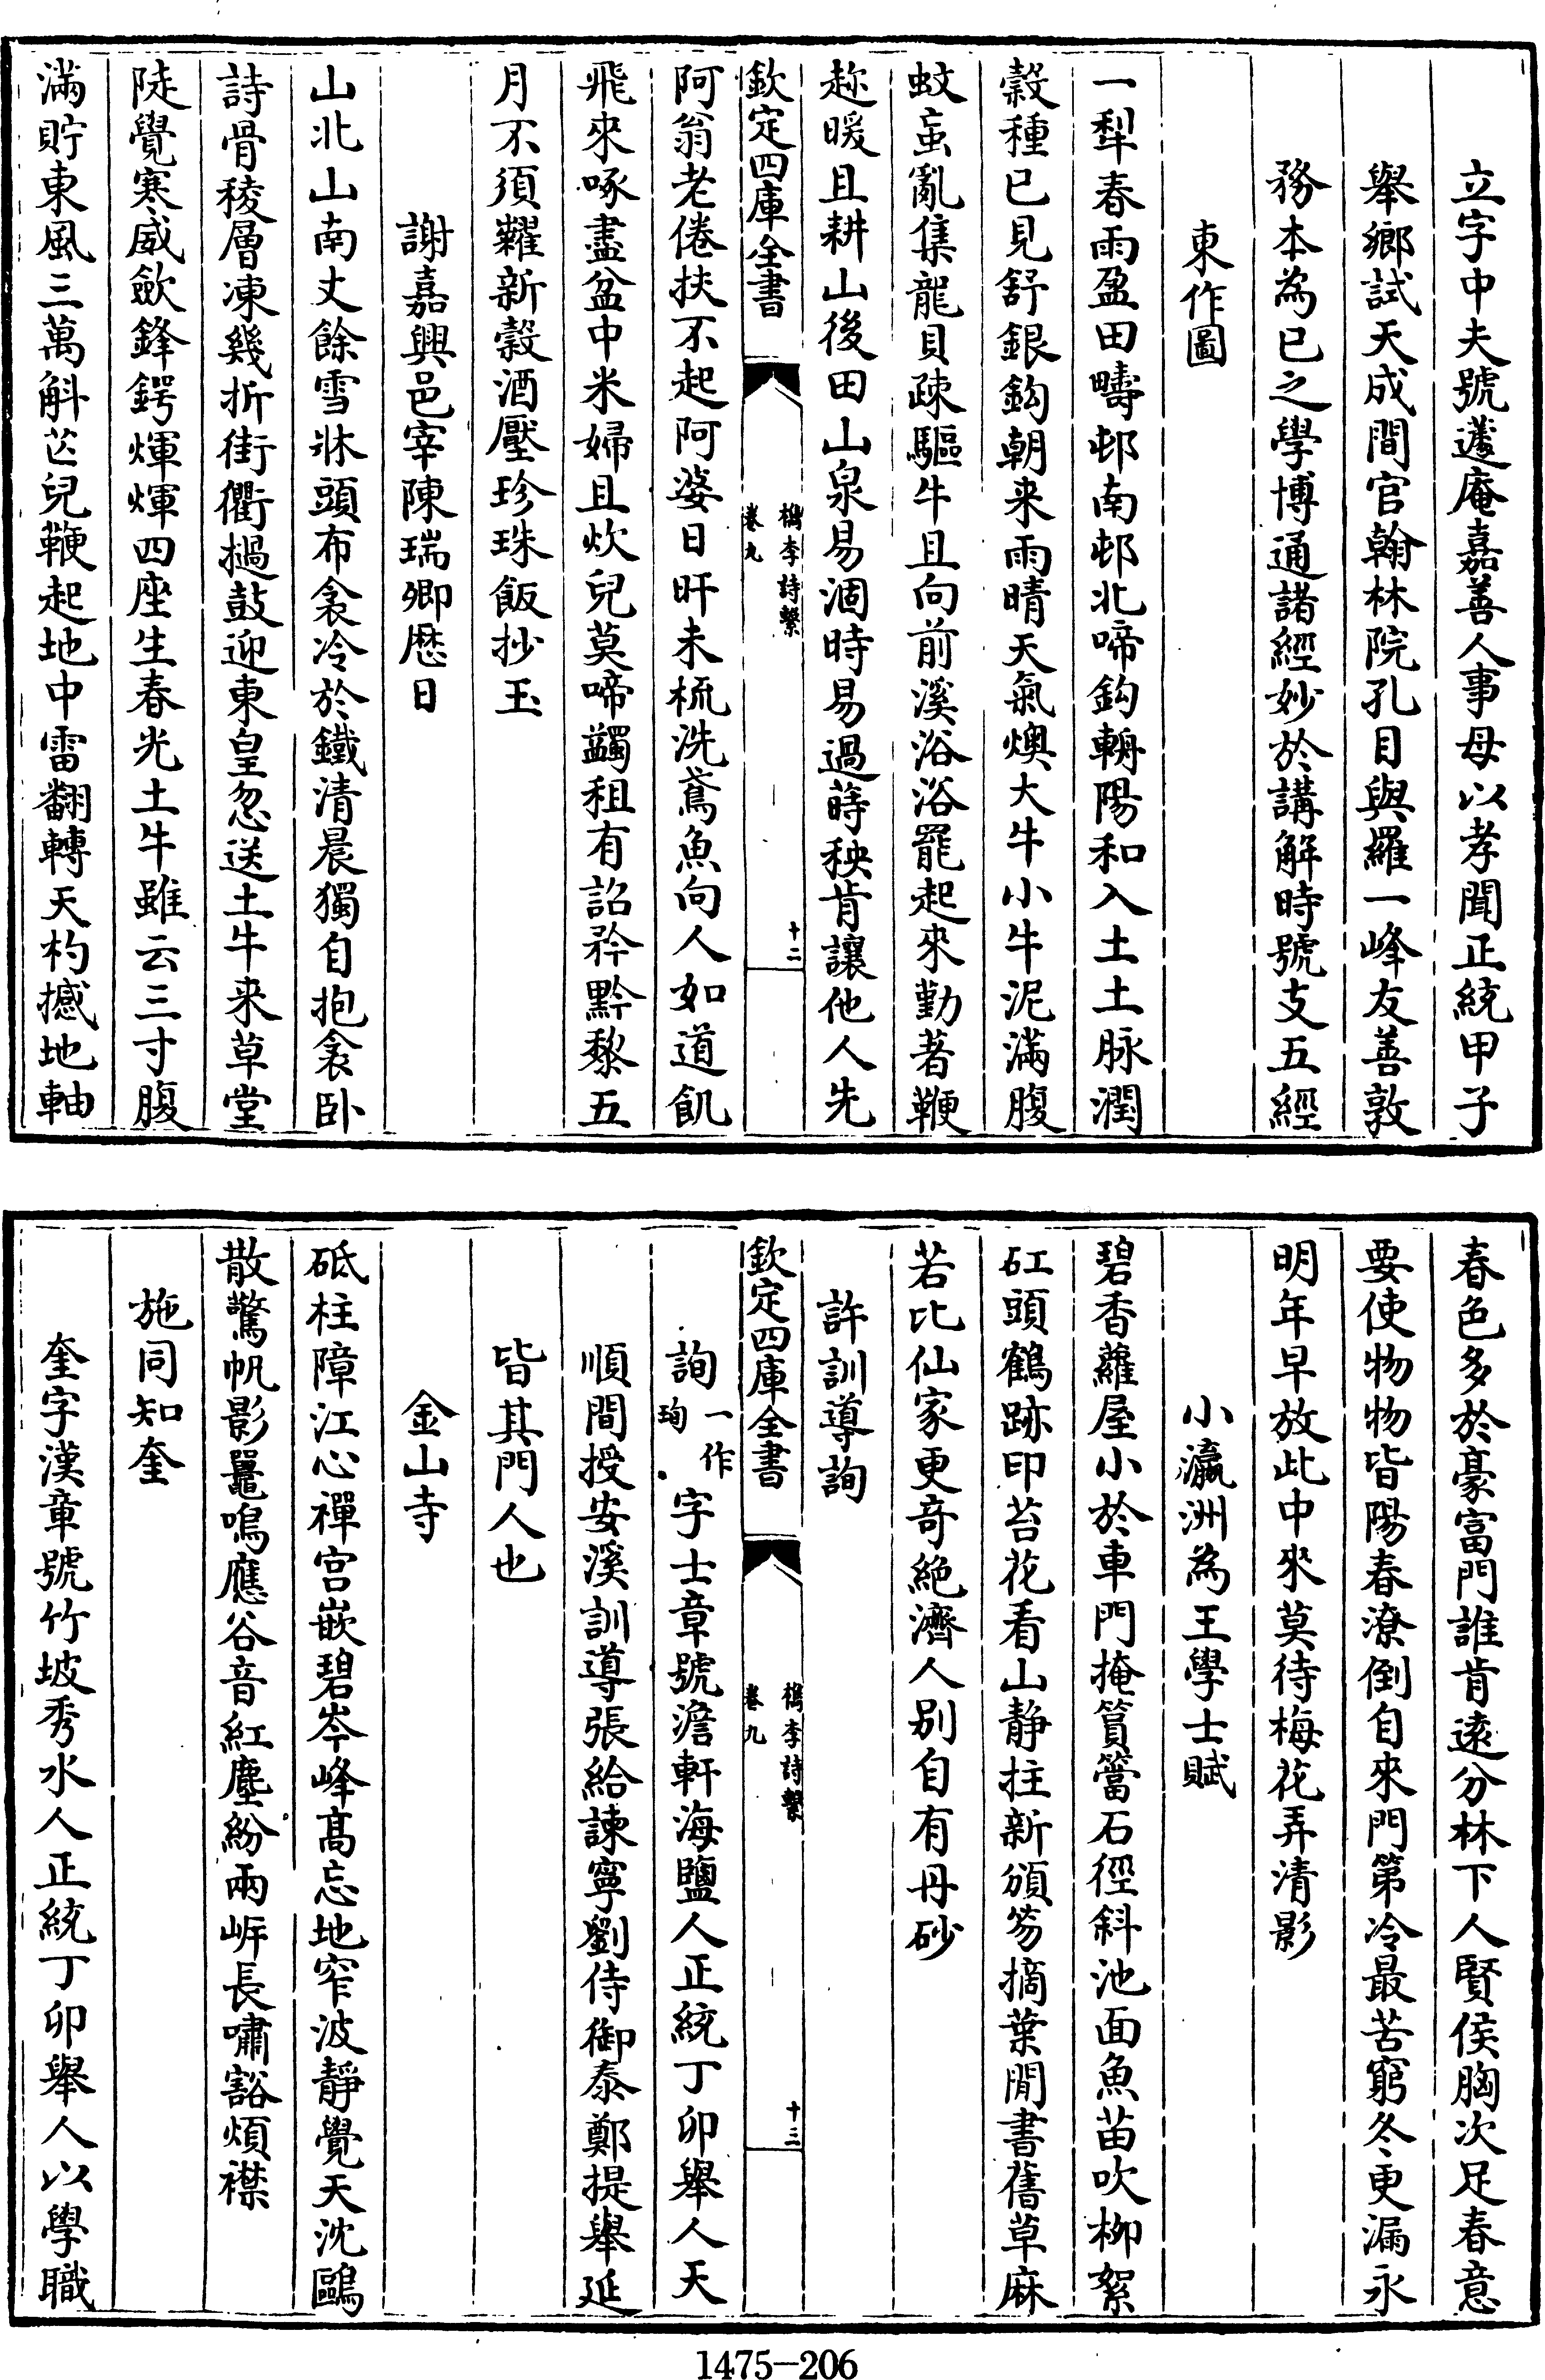 立字中夫號蘧庵嘉善人事母以孝聞正統甲子
舉鄉試天成間官翰林院孔目與羅一峰友善敦
務本為已之學博通諸經妙於講解時號支五經
東作圖
一犁春雨盈田疇邨南邨北啼鈎輈陽和入土土脉潤
糓種已見舒銀鈎朝来雨晴天氣燠大牛小牛泥滿腹
蚊䖟亂集龍貝疎驅牛且向前溪浴浴罷起來勤著鞭
趂暖且耕山後田山泉易涸時易過蒔秧肯讓他人先
欽定四庫全書
檇李詩繫
卷九
十二
阿翁老倦扶不起阿婆日旰未梳洗鳶魚向人如道飢
飛來啄盡盆中米婦且炊兒莫啼蠲租有詔矜黔黎五
月不須糶新糓酒壓珍珠飯抄玉
謝嘉興邑宰陳瑞卿歴日
山北山南丈餘雪牀頭布衾冷於鐵清晨獨自抱衾卧
詩骨稜層凍幾折街衢撾鼓迎東皇忽送土牛来草堂
陡覺寒威歛鋒鍔煇煇四座生春光土牛雖云三寸腹
滿貯東風三萬斛芒兒鞭起地中雷翻轉天杓撼地軸
春色多於豪富門誰肯遠分林下人賢侯胸次足春意
要使物物皆陽春潦倒自來門第冷最苦窮冬更漏永
明年早放此中來莫待梅花弄清影
小瀛洲為王學士賦
碧香蘿屋小於車門掩篔簹石徑斜池面魚苗吹栁絮
矼頭鶴跡印苔花看山静拄新頒笏摘葉閒書舊草麻
若比仙家更竒絶濟人别自有丹砂
許訓導詢
欽定四庫全書
檇李詩繫
卷九
十三
詢一作珣字士章號澹軒海鹽人正統丁卯舉人天
順間授安溪訓導張給諫寧劉侍御泰鄭提舉延
皆其門人也
金山寺
砥柱障江心禪宫嵌碧岑峰髙忘地窄波靜覺天沈鷗
散驚帆影鼉鳴應谷音紅塵紛兩岸長嘯豁煩襟
施同知奎
奎字漢章號竹坡秀水人正統丁卯舉人以學職
1475-206